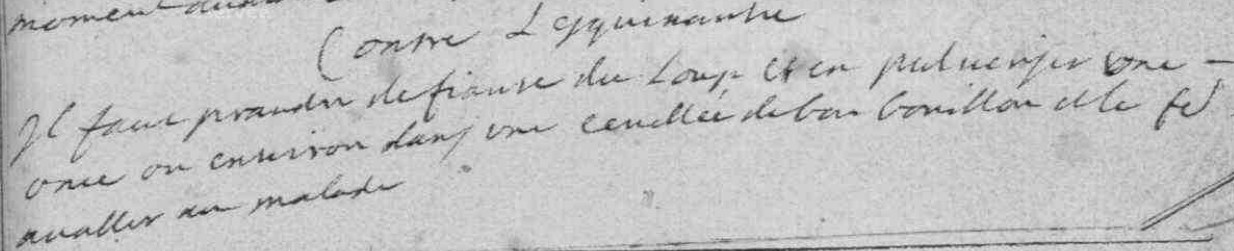 moment
Contre Lesquinansie
Il faut prandre de fiante du Loup et en pulveriser une
once ou environ dans une ceuillée de bon bouillon et le fe
avaller au malade